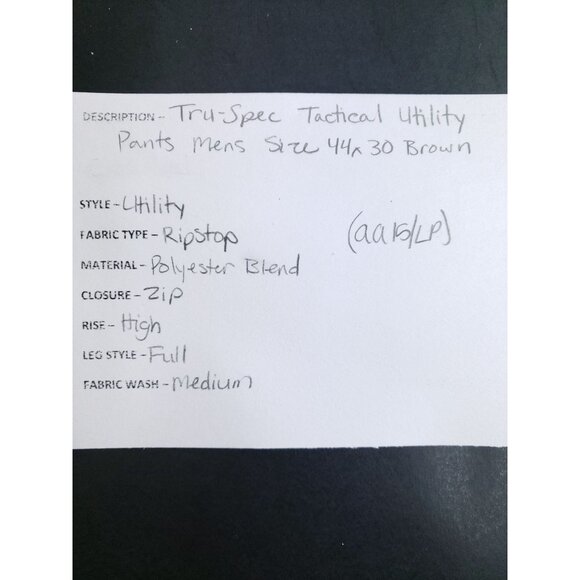 DESCRIPTION - Tru-Spec Tactical Utility
Pants Mens Size 44x30 Brown
STYLE - Utility
FABRIC TYPE - Ripstop
(aa15/LP)
MATERIAL - Polyester Blend
CLOSURE - Zip
RISE - High
LEG STYLE - Full
FABRIC WASH - Medium